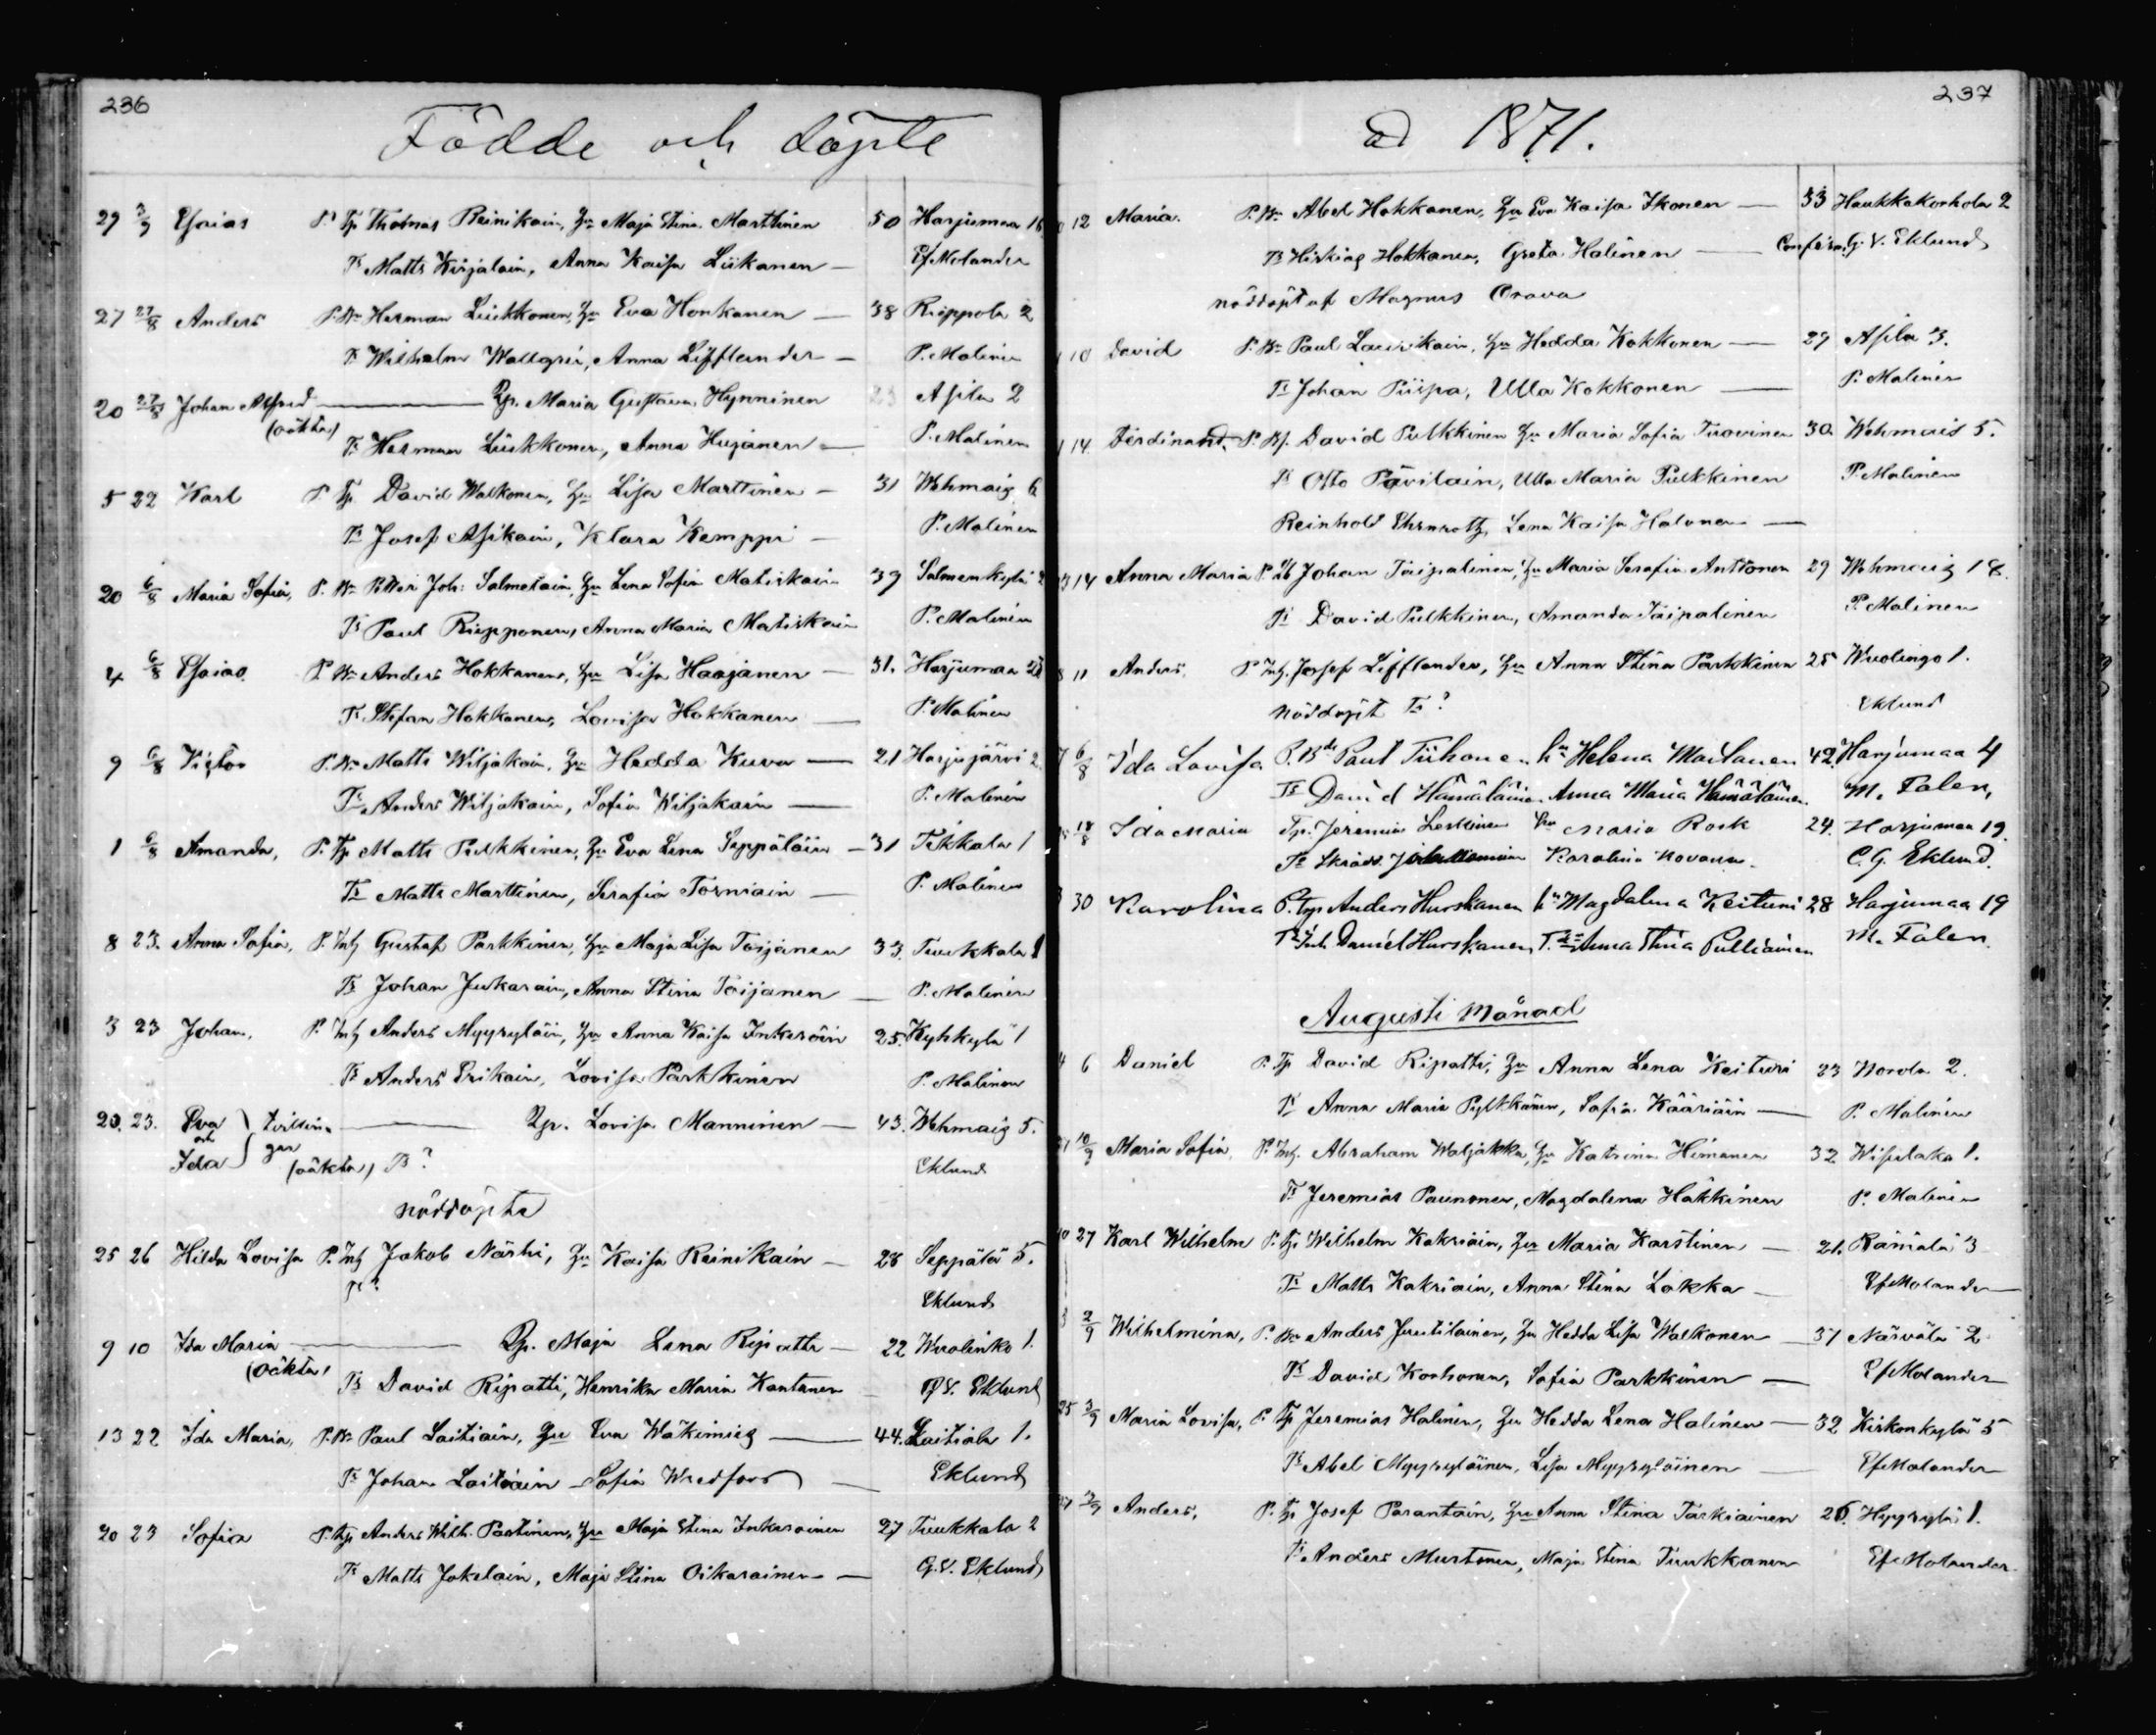 236
Födde och döpte
29 3/9 Esaias P. Tp Thomas Reinikain, Hu Maja Stina Marttinen 50 Harjumaa 16
Ts Matts Kirjalain, Anna Kaisa Liikanen — Ef Molander
27 27/8 Anders P. Bn Herman Liukkonen, Hu Eva Honkanen — 38 Riippola 2
Ts Wilhelm Wallgrén, Anna Lifflander — P. Malinen
20 27/8 Johan Alfred — Pig. Maria Gustava Hynninen 23 Asila 2
(oäkta)
Ts Herman Liukkonen, Anna Hujanen — P. Malinen
5 22 Karl P. Tp David Walkonen, Hu Lisa Marttinen — 31 Wehmais 6
Ts Josef Asikain, Klara Kemppi — P. Malinen
20 6/8 Maria Sofia, P. Bn Petter Joh: Salmelain, Hu Lena Sofia Matiskain 39 Salmenkylä 2
Ts Paul Riepponen, Anna Maria Matiskain P. Malinen
4 6/8 Esaias P. Bn Anders Hokkanen, Hu Lisa Haajanen — 31. Harjumaa 23
Ts Stefan Hokkanen, Lovisa Hokkanen — P. Malinen
9 6/8 Victor P. Bn Matts Wiljakain, Hu Hedda Kuva — 21 Harjujärvi 2
Ts Anders Wiljakain, Sofia Wiljakain — P. Malinen
1 6/8 Amanda, P. Tp Matts Pulkkinen, Hu Eva Lena Seppäläin — 31 Tikkala 1
Ts Matts Marttinen, Serafia Torniain — P. Malinen
8 23. Anna Sofia, P. Inh Gustaf Parkkinen, Hu Maja Lisa Toijanen 33. Tuukkala 1
Ts Johan Inkarain, Anna Stina Toijanen — P. Malinen
3 23 Johan, P. Inh Anders Myyryläin, Hu Anna Kaisa Inkeröin 25. Kyhkylä 1
Ts Anders Erikain, Lovisa Parkkinen P. Malinen
20. 23. Eva och Ida } tvillingar — Pig. Lovisa Manninen — 43. Wehmais 5.
(oäkta) Ts ? Eklund
nöddöpta
25 26 Hilda Lovisa P. Inh Jakob Närhi, Hu Kaisa Reinikain — 28 Seppälä 5.
Ts ? Eklund
9 10 Ida Maria — Pig. Maja Lena Ripatti — 22 Wuolinko 1.
(oäkta) Ts David Ripatti, Henrika Maria Kantanen — G. V. Eklund
13 22 Ida Maria, P. Bn Paul Laitiain, Hu Eva Wäkimies — 44. Laitiala 1.
Ts Johan Laitiain Sofia Wredfors — Eklund
20 23 Sofia P. Tp Anders Wilh. Partinen, Hu Maja Stina Inkeroinen 27 Tuukkala 2
Ts Matts Jokelain, Maja Stina Oikarainen — G. V. Eklund
237
år 1871.
12 Maria. P. Bn Abel Hokkanen, Hu Eva Kaisa Ikonen — 33 Haukkakorhola 2
Ts Hirkias Hokkanen, Greta Halinen — Confirm. G. V. Eklund
nöddöpt af Magnus Orava
10 David P. Bn Paul Laurikain, Hu Hedda Kokkonen — 29 Asila 3.
Ts Johan Piispa, Ulla Kokkonen — P. Malinen
14 Ferdinand, P. David Pulkkinen Hu Maria Sofia Tuovinen 30. Wehmais 5.
Ts Otto Pävilain, Ulla Maria Pulkkinen P. Malinen
Reinhold Ehrnroth, Lena Kaisa Halonen —
14 Anna Maria P. Johan Taipalinen, Hu Maria Serafia Anttonen 29 Wehmais 18.
Ts David Pulkkinen, Amanda Taipalinen P. Malinen
11 Anders, P. Inh. Josef Lifflander, Hu Anna Stina Parkkinen 25 Wuolingo 1.
nöddöpt Ts ? Eklund
6/8 Ida Lovisa P. Paul Tiihonen hu Helena Mailanen 42. Harjumaa 4
Ts David Hämäläinen, Anna Maria Hämäläinen M. Falen,
18/8 Ida Maria Tp. Jeremias Leskinen hu Maria Rask 24. Harjumaa 19.
Ts Skrädd. Karolina Kovanen. C. G. Eklund.
30 Karolina P. Tp Anders Hurskanen hu Magdalena Keituri 28 Harjumaa 19
Ts Inh Daniel Hurskanen, Anna Stina Pulliainen M. Falen.
Augusti Månad
6 Daniel P. Tp David Ripatti, Hu Anna Lena Keituri 23 Norola 2.
Ts Anna Maria Pylkkänen, Sofia Kääriäin — P. Malinen
10/9 Maria Sofia, P. Inh. Abraham Waljakka, Hu Katrina Himanen 32 Wisulaks 1.
Ts Jeremias Paunonen, Magdalena Häkkinen P. Malinen
27 Karl Wilhelm P. Tp Wilhelm Kakriain, Hu Maria Karstinen — 21. Rämälä 3
Ts Matts Kakriain, Anna Stina Lokka — Ef Molander
2/9 Wilhelmina, P. Bn Anders Juutilainen, Hu Hedda Lisa Walkonen — 37 Närvälä 2
Ts David Korhonen, Sofia Parkkinen — Ef Molander
25 3/9 Maria Lovisa, P. Tp Jeremias Halinen, Hu Hedda Lena Halinen — 32 Kirkonkylä 5
Ts Abel Myyryläinen, Lisa Myyryläinen — Ef Molander
3/9 Anders, P. Tp Josef Parantain, Hu Anna Stina Tarkiainen 26. Hyyrylä 1.
Ts Anders Murtonen, Maja Stina Tuukkanen Ef Molander